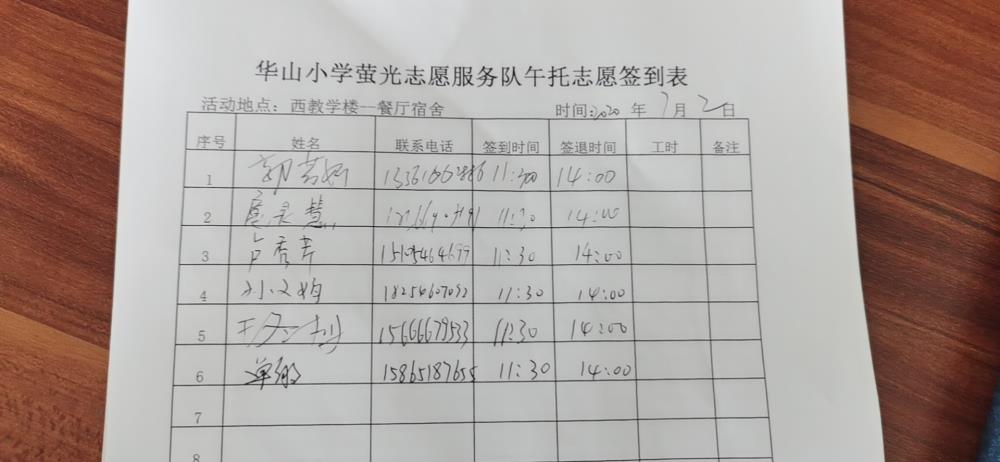 华山小学萤光志愿服务队午托志愿签到表
活动地点：西教学楼--餐厅宿舍 时间:2020 年 7月 2日
序号 姓名 联系电话 签到时间 签退时间 工时 备注
1 郭 11:30 14:00
2 慧 11:30 14:00
3 卢秀芹 15105464699 11:30 14:00
4 孙文娟 18254607092 11:30 14:00
5 王 15666679533 11:30 14:00
6 单 15865187655 11:30 14:00
7
8